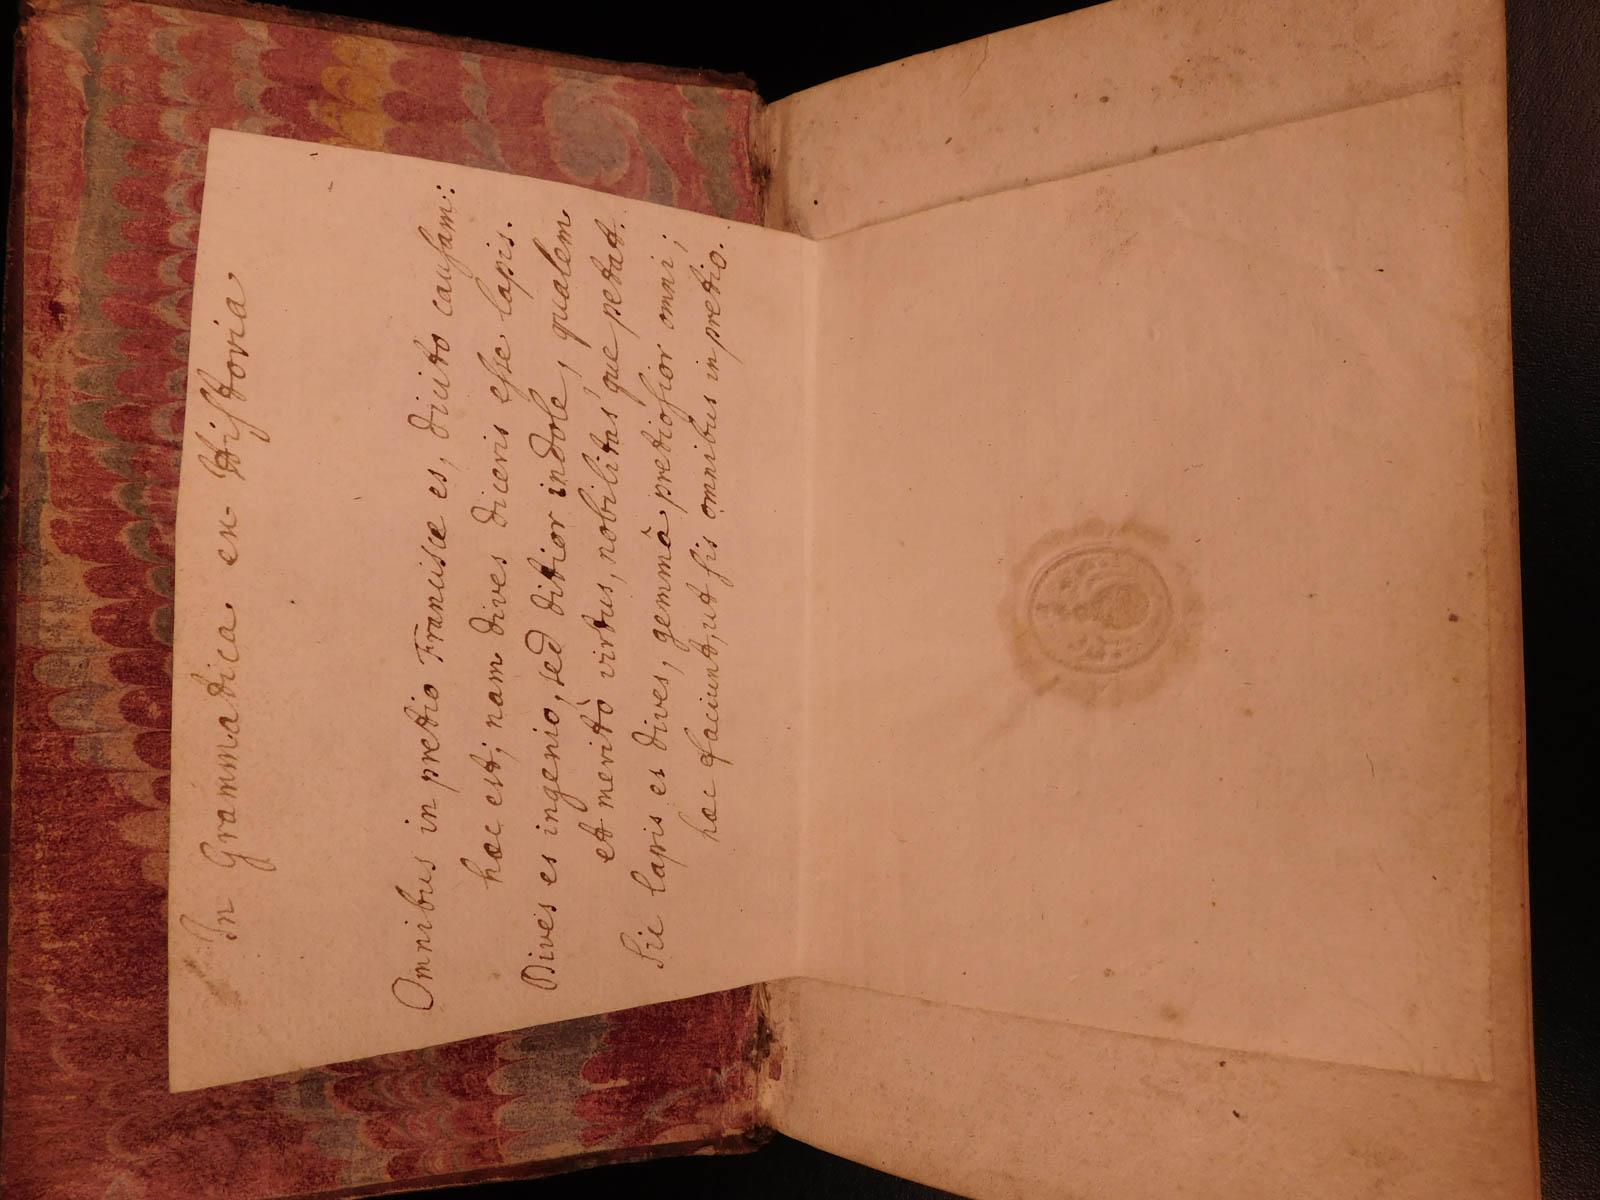 In Grammatica ex Historia
Omnibus in pretio Francisce es, dicito causam:
hæc est; nam dives diceris esse lapis.
Dives es ingenio, sed ditior indole, qualem
et meritò virtus, nobilitas'que petat.
Sic lapis es dives, gemmâ pretiosior omni;
hæc faciunt, ut sis omnibus in pretio.